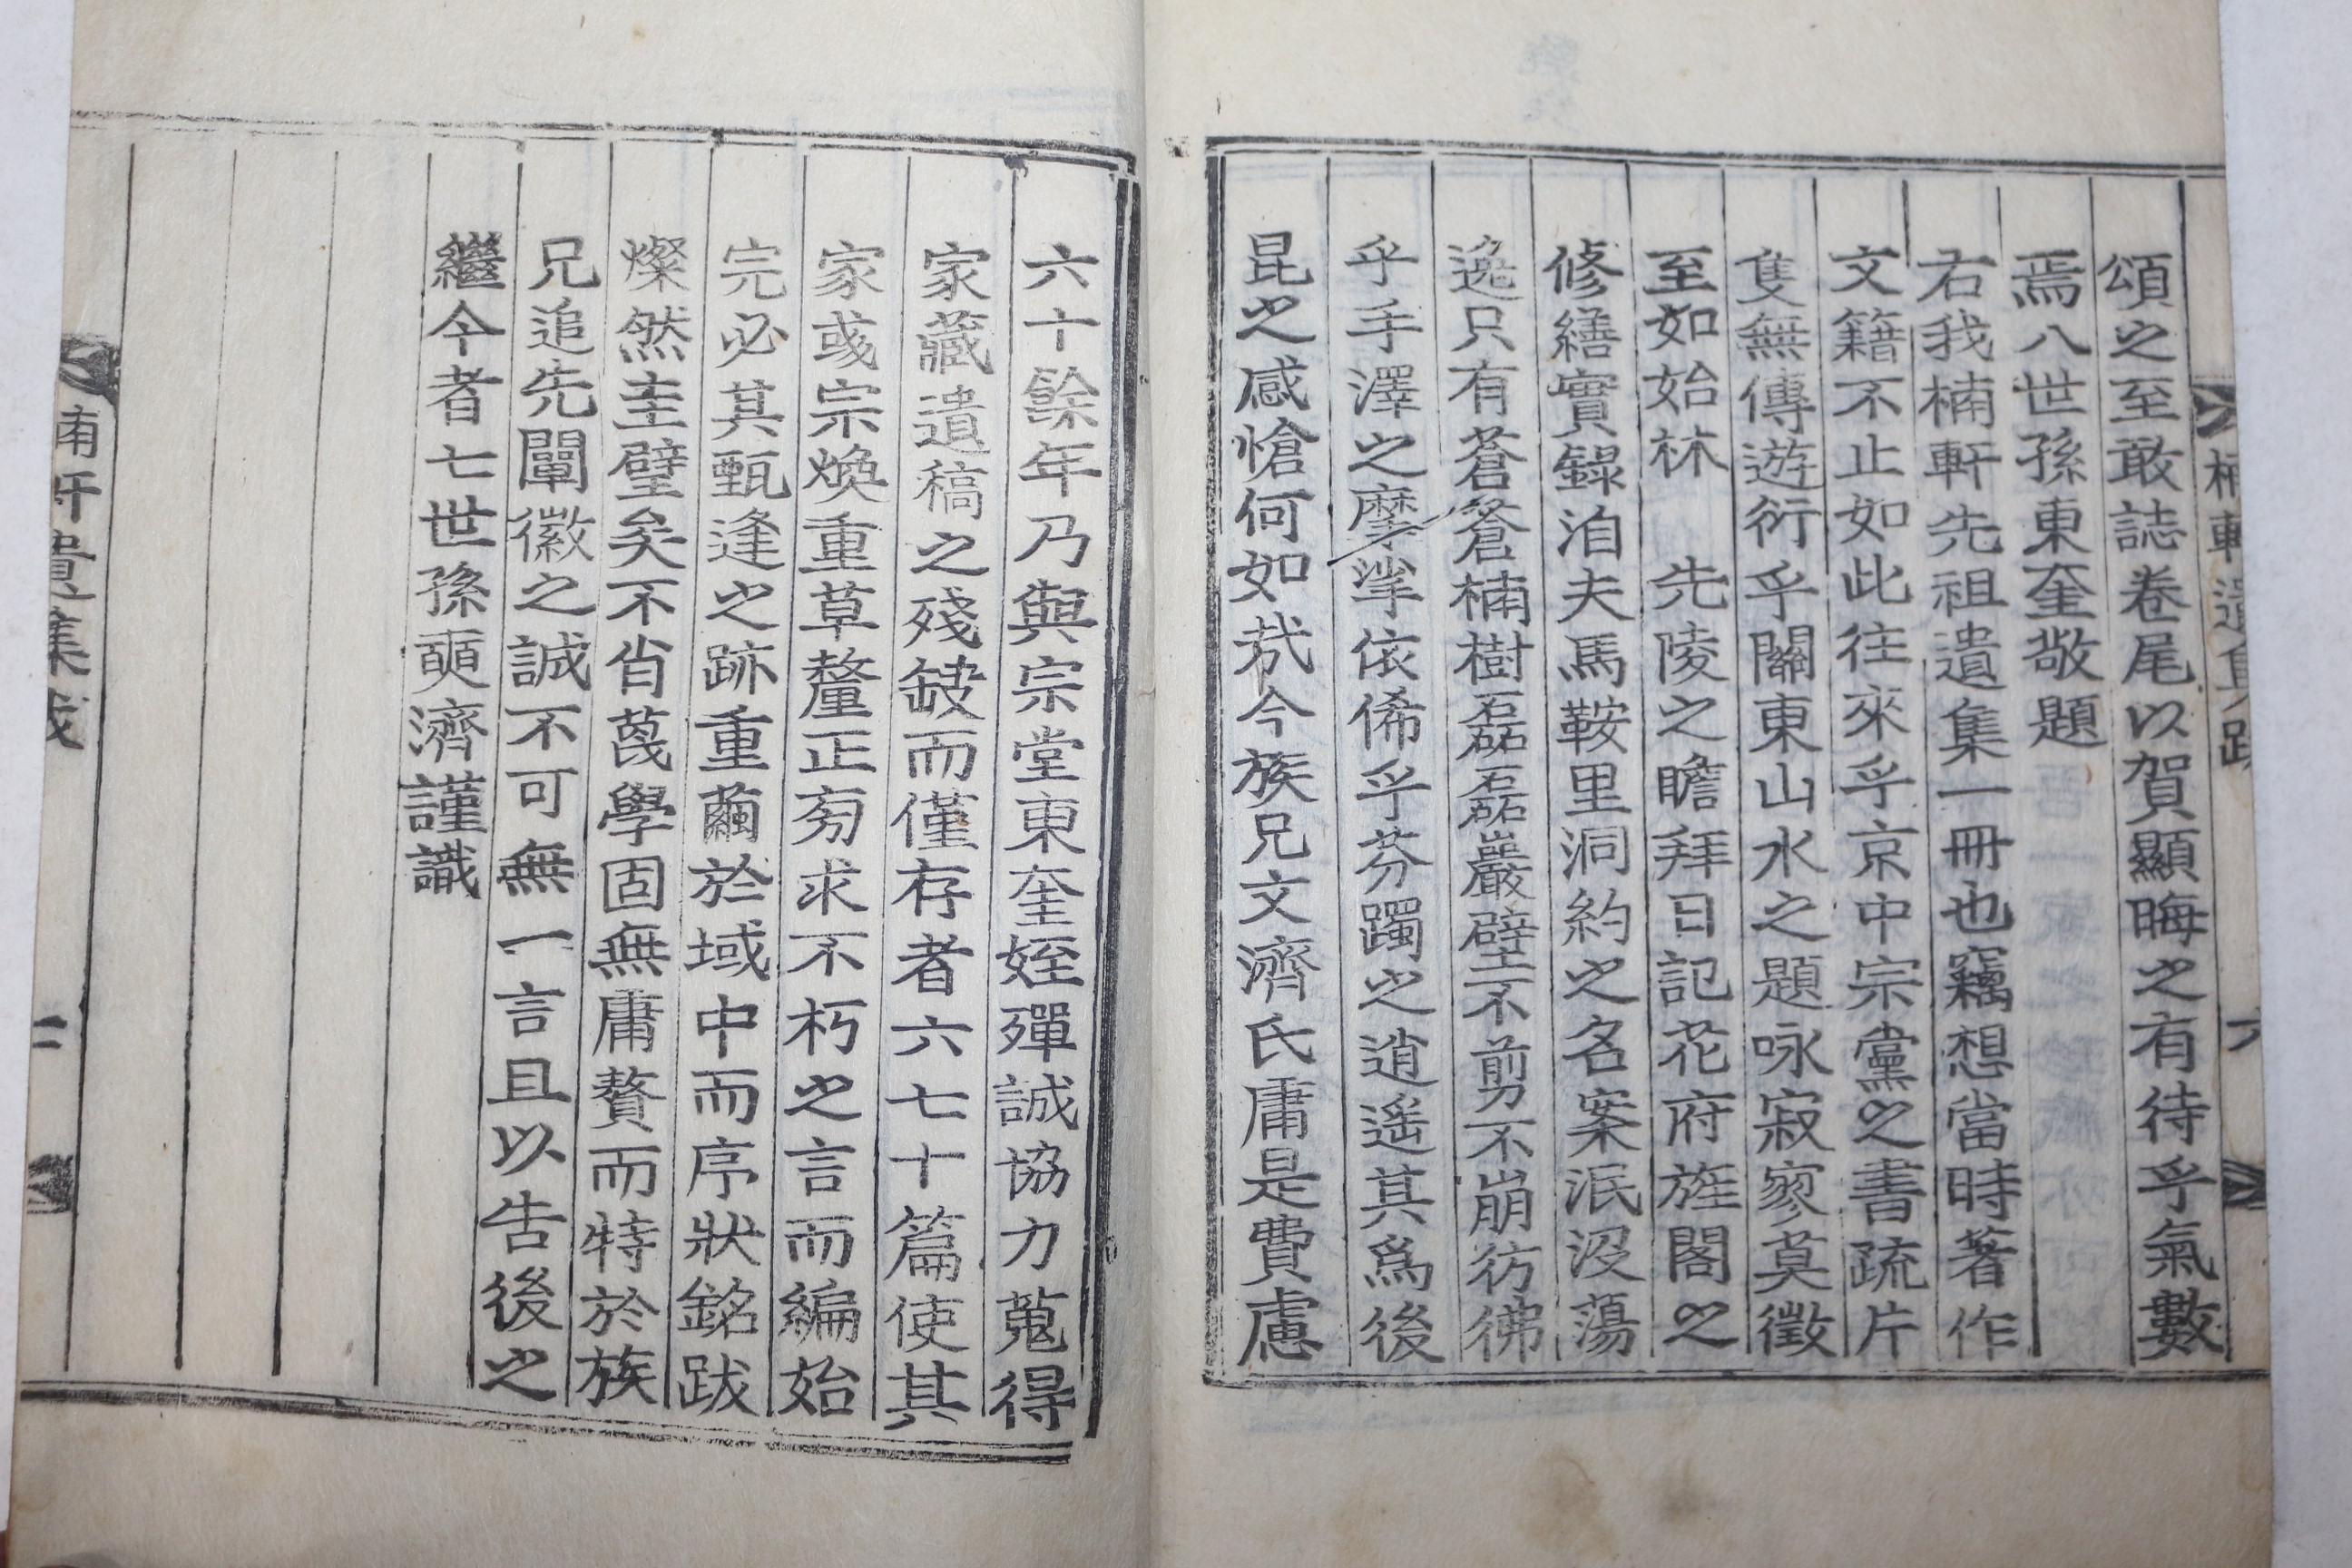 頌之至敢誌卷尾以賀顯晦之有待乎氣數
焉八世孫東奎敬題
右我楠軒先祖遺集一冊也竊想當時著作
文籍不止如此往來乎京中宗黨之書疏片
隻無傳遊衍乎關東山水之題咏寂寥莫徵
至如始林 先陵之瞻拜日記花府旌閣之
修繕實錄洎夫馬鞍里洞約之名案泯沒蕩
逸只有蒼蒼楠樹磊磊巖壁不剪不崩彷彿
乎手澤之摩挲依俙乎芬躅之逍遥其爲後
昆之感愴何如㢤今族兄文濟氏庸是費慮
六十餘年乃與宗堂東奎姪殫誠協力蒐得
家藏遺稿之殘缺而僅存者六七十篇使其
家彧宗煥重草釐正旁求不朽之言而編始
完必其甄逢之跡重繭於域中而序狀銘跋
燦然圭璧矣不省蔑學固無庸贅而特於族
兄追先闡徽之誠不可無一言且以告後之
繼今者七世孫奭濟謹識
楠軒遺集跋
二